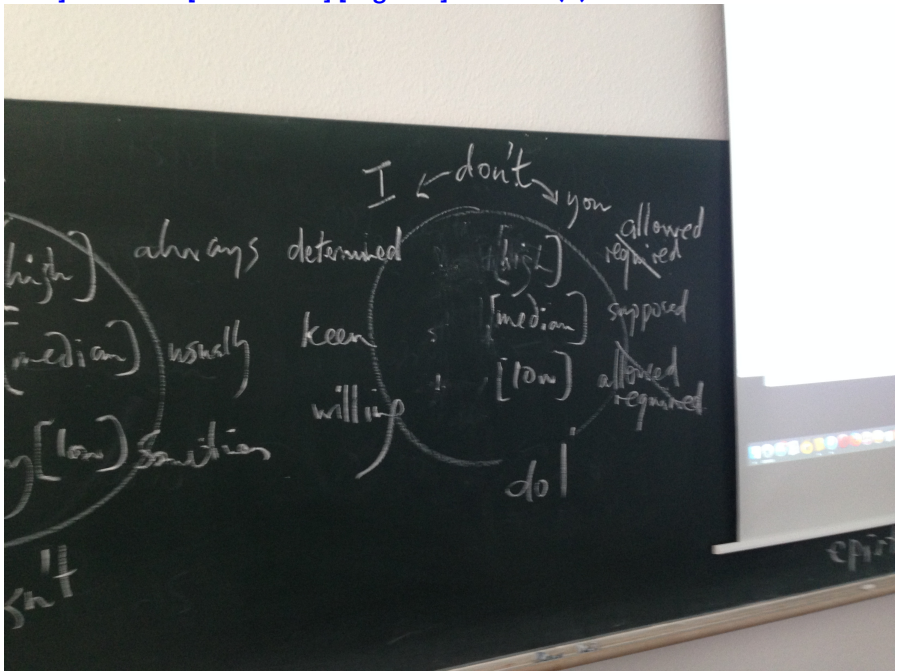 I ← don't → you
allowed
high] always determined [high] required
[median] usually keen [median] supposed
[low] sometimes willing [low] allowed
required
do!
sn't
epist